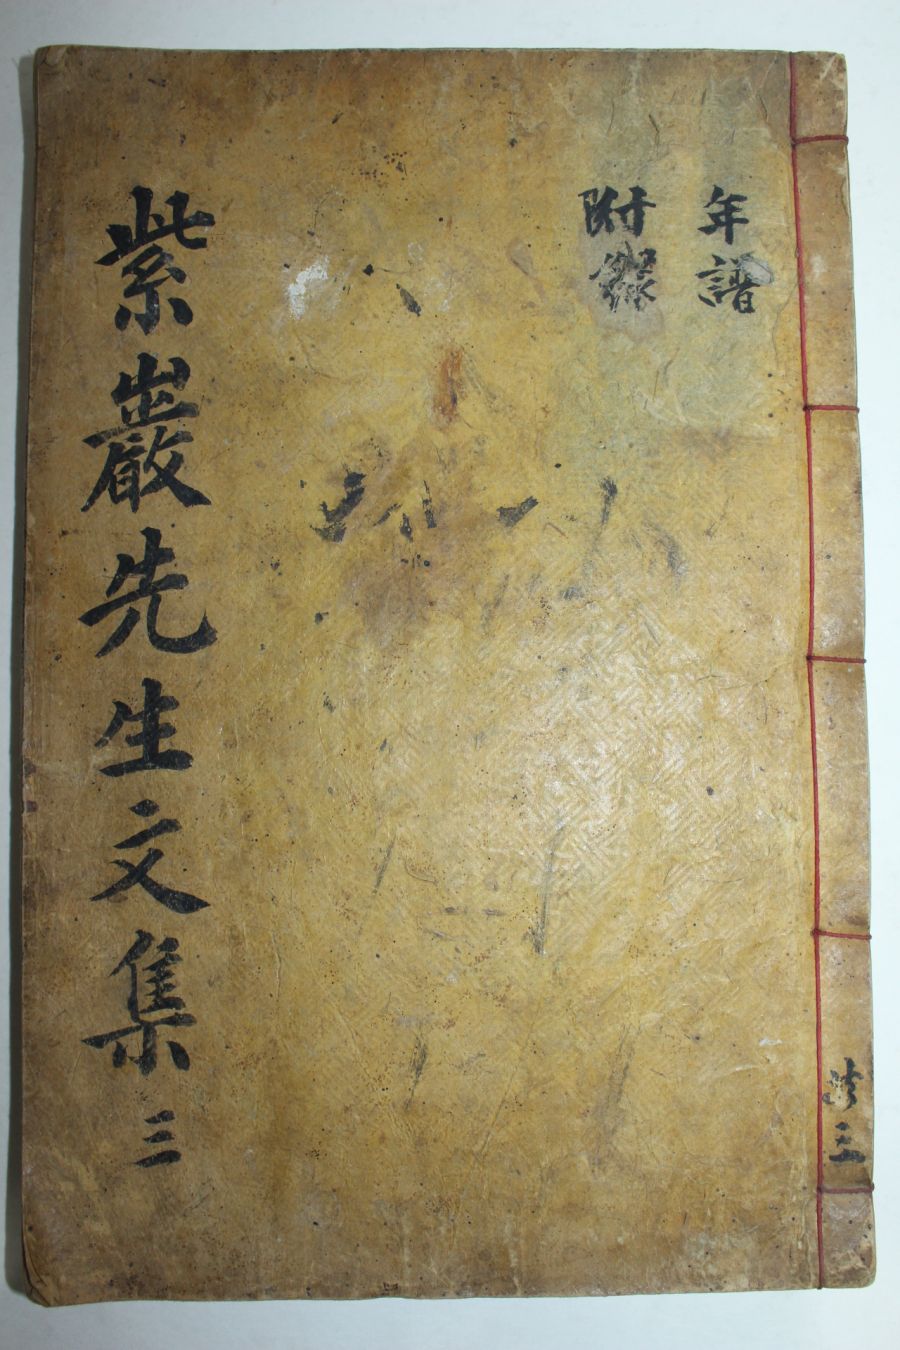 紫巖先生文集 三
年譜
附錄
共三